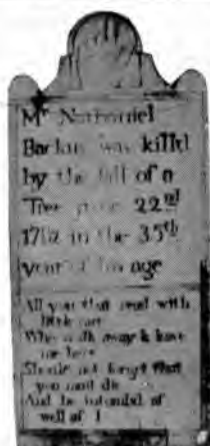 Mr Nathaniel
was killd
by the fall of a
Tree 22nd
in the 35th
year of his age
All you that read with
little care
Who walk away & leave
me here
Should not forget that
you must die
And be intombd as
well as I